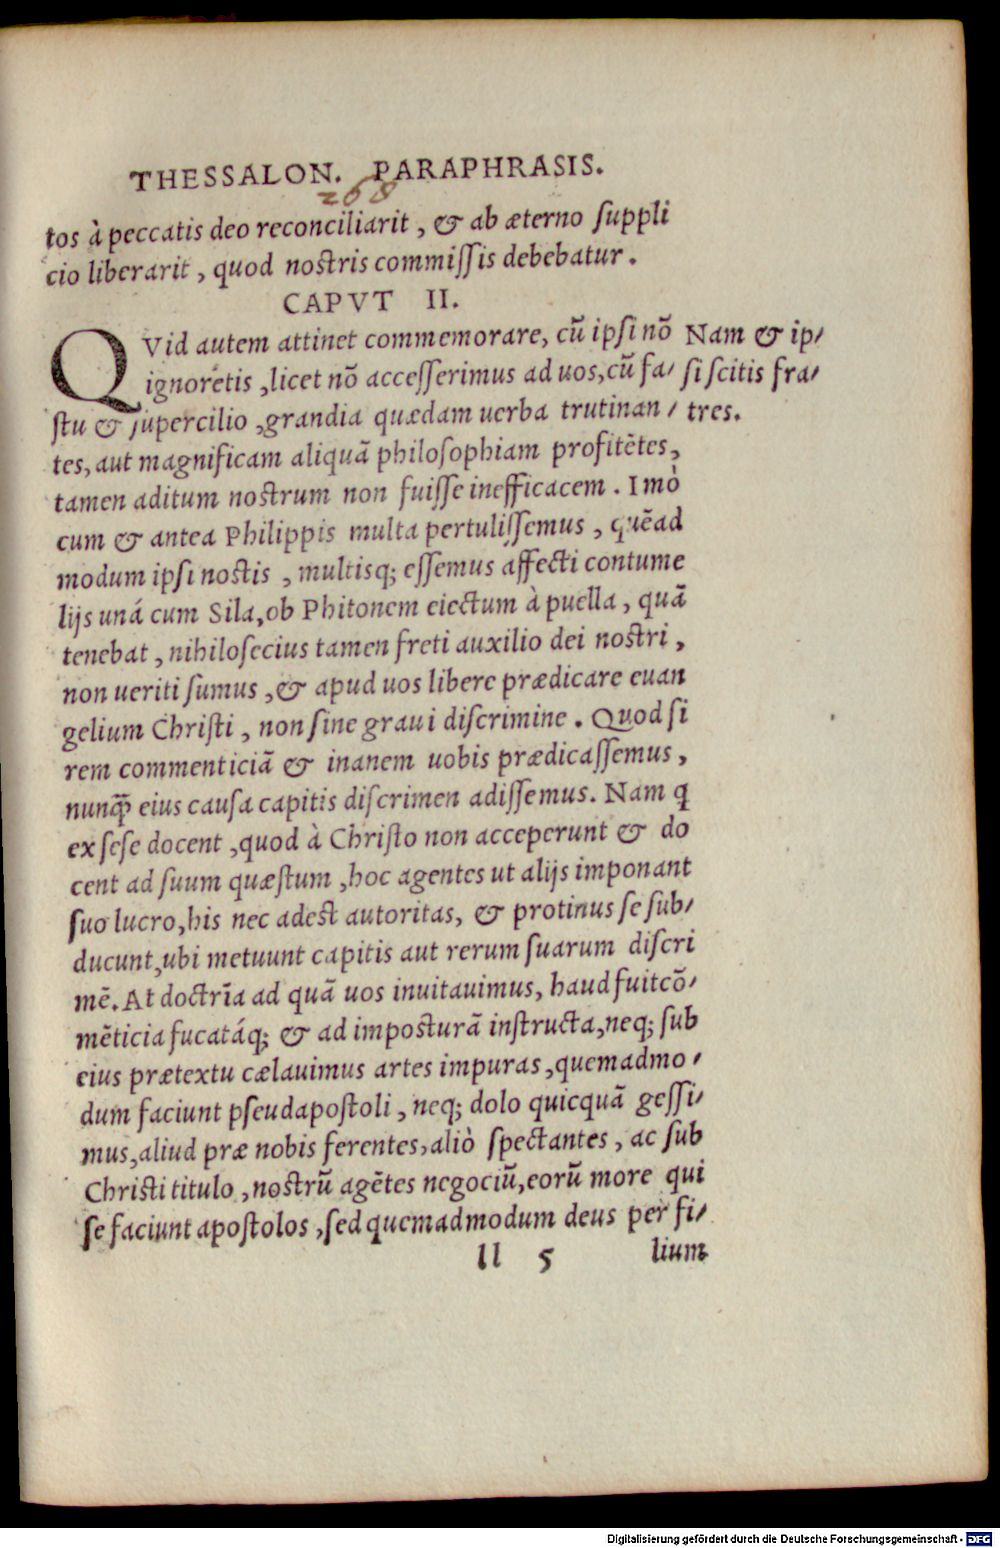 THESSALON. PARAPHRASIS.
268
tos à peccatis deo reconciliarit, & ab æterno ſuppli
cio liberarit, quod nostris commiſſis debebatur.
CAPVT II.
QVid autem attinet commemorare, cū ipſi nō
ignoretis, licet nō acceſſerimus ad uos, cū fa/
ſtu & ſupercilio, grandia quædam uerba trutinan/
tes, aut magnificam aliquā philoſophiam profitētes,
tamen aditum nostrum non fuiſſe inefficacem. Imò
cum & antea Philippis multa pertuliſſemus, quēad
modum ipſi nostis, multisq; eſſemus affecti contume
lijs uná cum Sila, ob Phitonem eiectum à puella, quā
tenebat, nihiloſecius tamen freti auxilio dei nostri,
non ueriti ſumus, & apud uos libere prædicare euan
gelium Chriſti, non ſine graui diſcrimine. Quod ſi
rem commenticiā & inanem uobis prædicaſſemus,
nunq̄ eius cauſa capitis diſcrimen adiſſemus. Nam q
ex ſeſe docent, quod à Chriſto non acceperunt & do
cent ad ſuum quæſtum, hoc agentes ut alijs imponant
ſuo lucro, his nec adest autoritas, & protinus ſe ſub/
ducunt, ubi metuunt capitis aut rerum ſuarum diſcri
mē. At doctrīa ad quā uos inuitauimus, haud fuit cō/
mēticia fucatáq; & ad imposturā inſtructa, neq; ſub
eius prætextu cælauimus artes impuras, quemadmo/
dum faciunt pſeudapoſtoli, neq; dolo quicquā geſſi/
mus, aliud præ nobis ferentes, aliò ſpectantes, ac ſub
Christi titulo, nostrū agētes negociū, eorū more qui
ſe faciunt apoſtolos, ſed quemadmodum deus per fi/
ll 5 lium
Nam & ip/
ſi ſcitis fra/
tres.
Digitalisierung gefördert durch die Deutsche Forschungsgemeinschaft - DFG